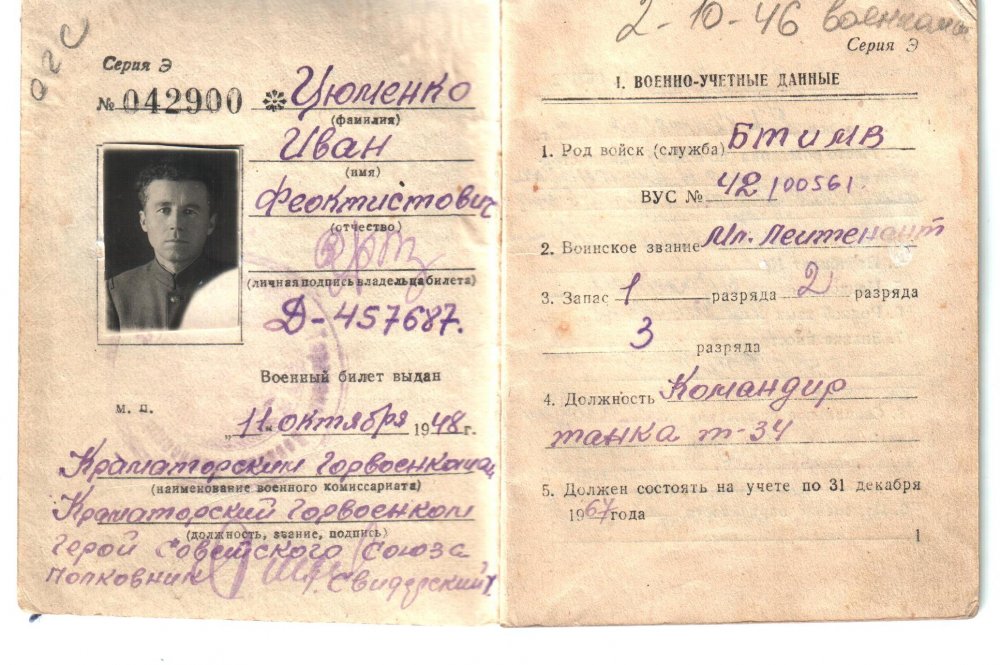 ОГС
Серия Э
№ 042900
Цюменко
(фамилия)
Иван
(имя)
Феоктистович
(отчество)
(личная подпись владельца билета)
Д-457687.
Военный билет выдан
м. п.
„11" октября 1948 г.
Краматорским горвоенкомат
(наименование военного комиссариата)
Краматорский горвоенком
(должность, звание, подпись)
Герой Советского Союза
полковник Свидерский
2-10-46 военкомат
Серия Э
I. ВОЕННО-УЧЕТНЫЕ ДАННЫЕ
1. Род войск (служба) БТиМВ
ВУС № 42/00561
2. Воинское звание Мл. Лейтенант
3. Запас 1 разряда 2 разряда
3 разряда
4. Должность Командир
танка Т-34
5. Должен состоять на учете по 31 декабря
1967 года
1